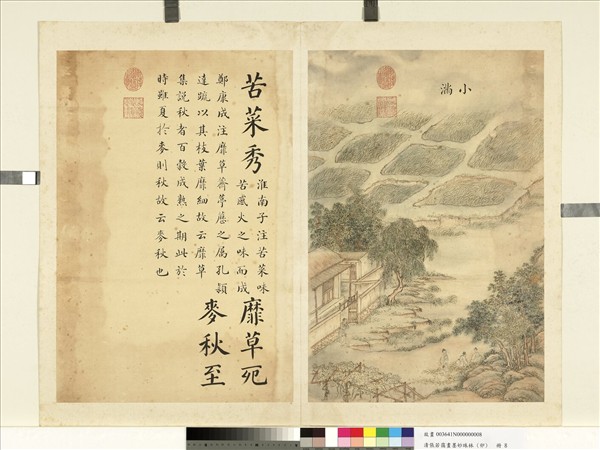 小滿
苦菜秀
淮南子注苦菜味
苦感火之味而成
靡草死
鄭康成注靡草薺葶藶之屬孔穎
達疏以其枝葉靡細故云靡草
麥秋至
集說秋者百穀成熟之期此於
時雖夏於麥則秋故云麥秋也
故畫 003641N000000008
清張若靄畫墨妙珠林（卯） 冊 8